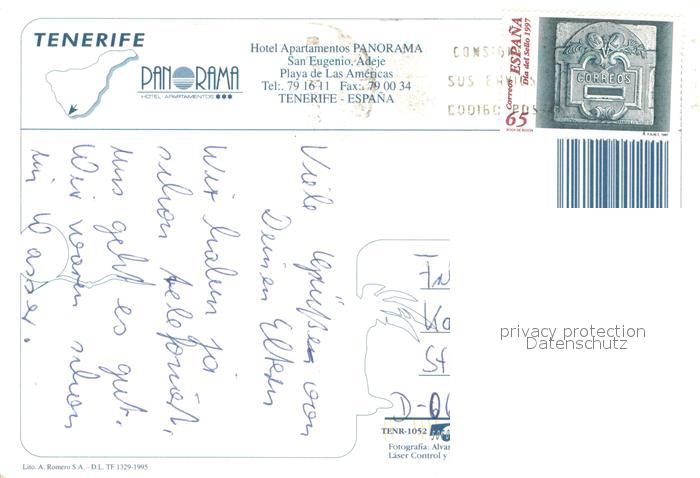 TENERIFE
PANORAMA
HOTEL-APARTAMENTOS
Hotel Apartamentos PANORAMA
San Eugenio, Adeje
Playa de Las Américas
Tel:. 79 16 11 Fax:. 79 00 34
TENERIFE - ESPAÑA
CONSIGNE
SUS ENVIOS
CODIGO POSTAL
Correos
ESPAÑA
Día del Sello 1997
65
CORREOS
Viele Grüßen von
Deinen Eltern
Wir haben ja
schon telefoniert.
Uns geht es gut.
Wir waren schon
im Wasser.
privacy protection
Datenschutz
TENR-1052
Fotografía: Alvar
Láser Control y
Lito. A. Romero S.A. - D.L. TF 1329-1995